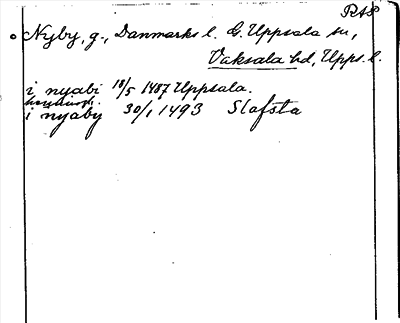 RAP
Nyby, g., Danmarks l. G. Uppsala sn,
Vaksala hd, Upps. l.
i nyabi 18/5 1487 Uppsala.
i nyaby 30/1 1493 Slafsta